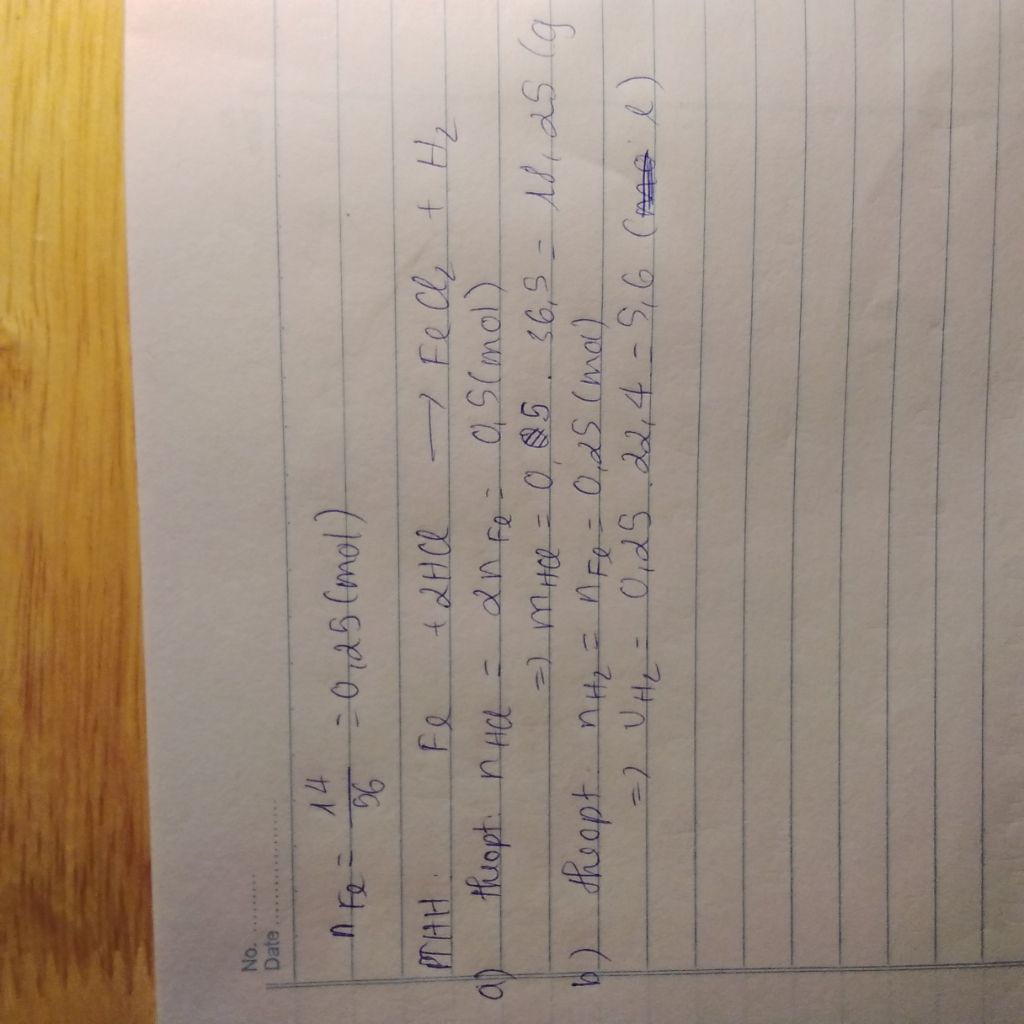 No. ..........
Date ..................
n Fe = 14/56 = 0,25 (mol)
PTHH: Fe + 2HCl → FeCl₂ + H₂
a) theo pt: n HCl = 2n Fe = 0,5 (mol)
=) m HCl = 0,5 . 36,5 = 18,25 (g
b) theo pt: n H₂ = n Fe = 0,25 (mol)
=) V H₂ = 0,25 . 22,4 = 5,6 (l)